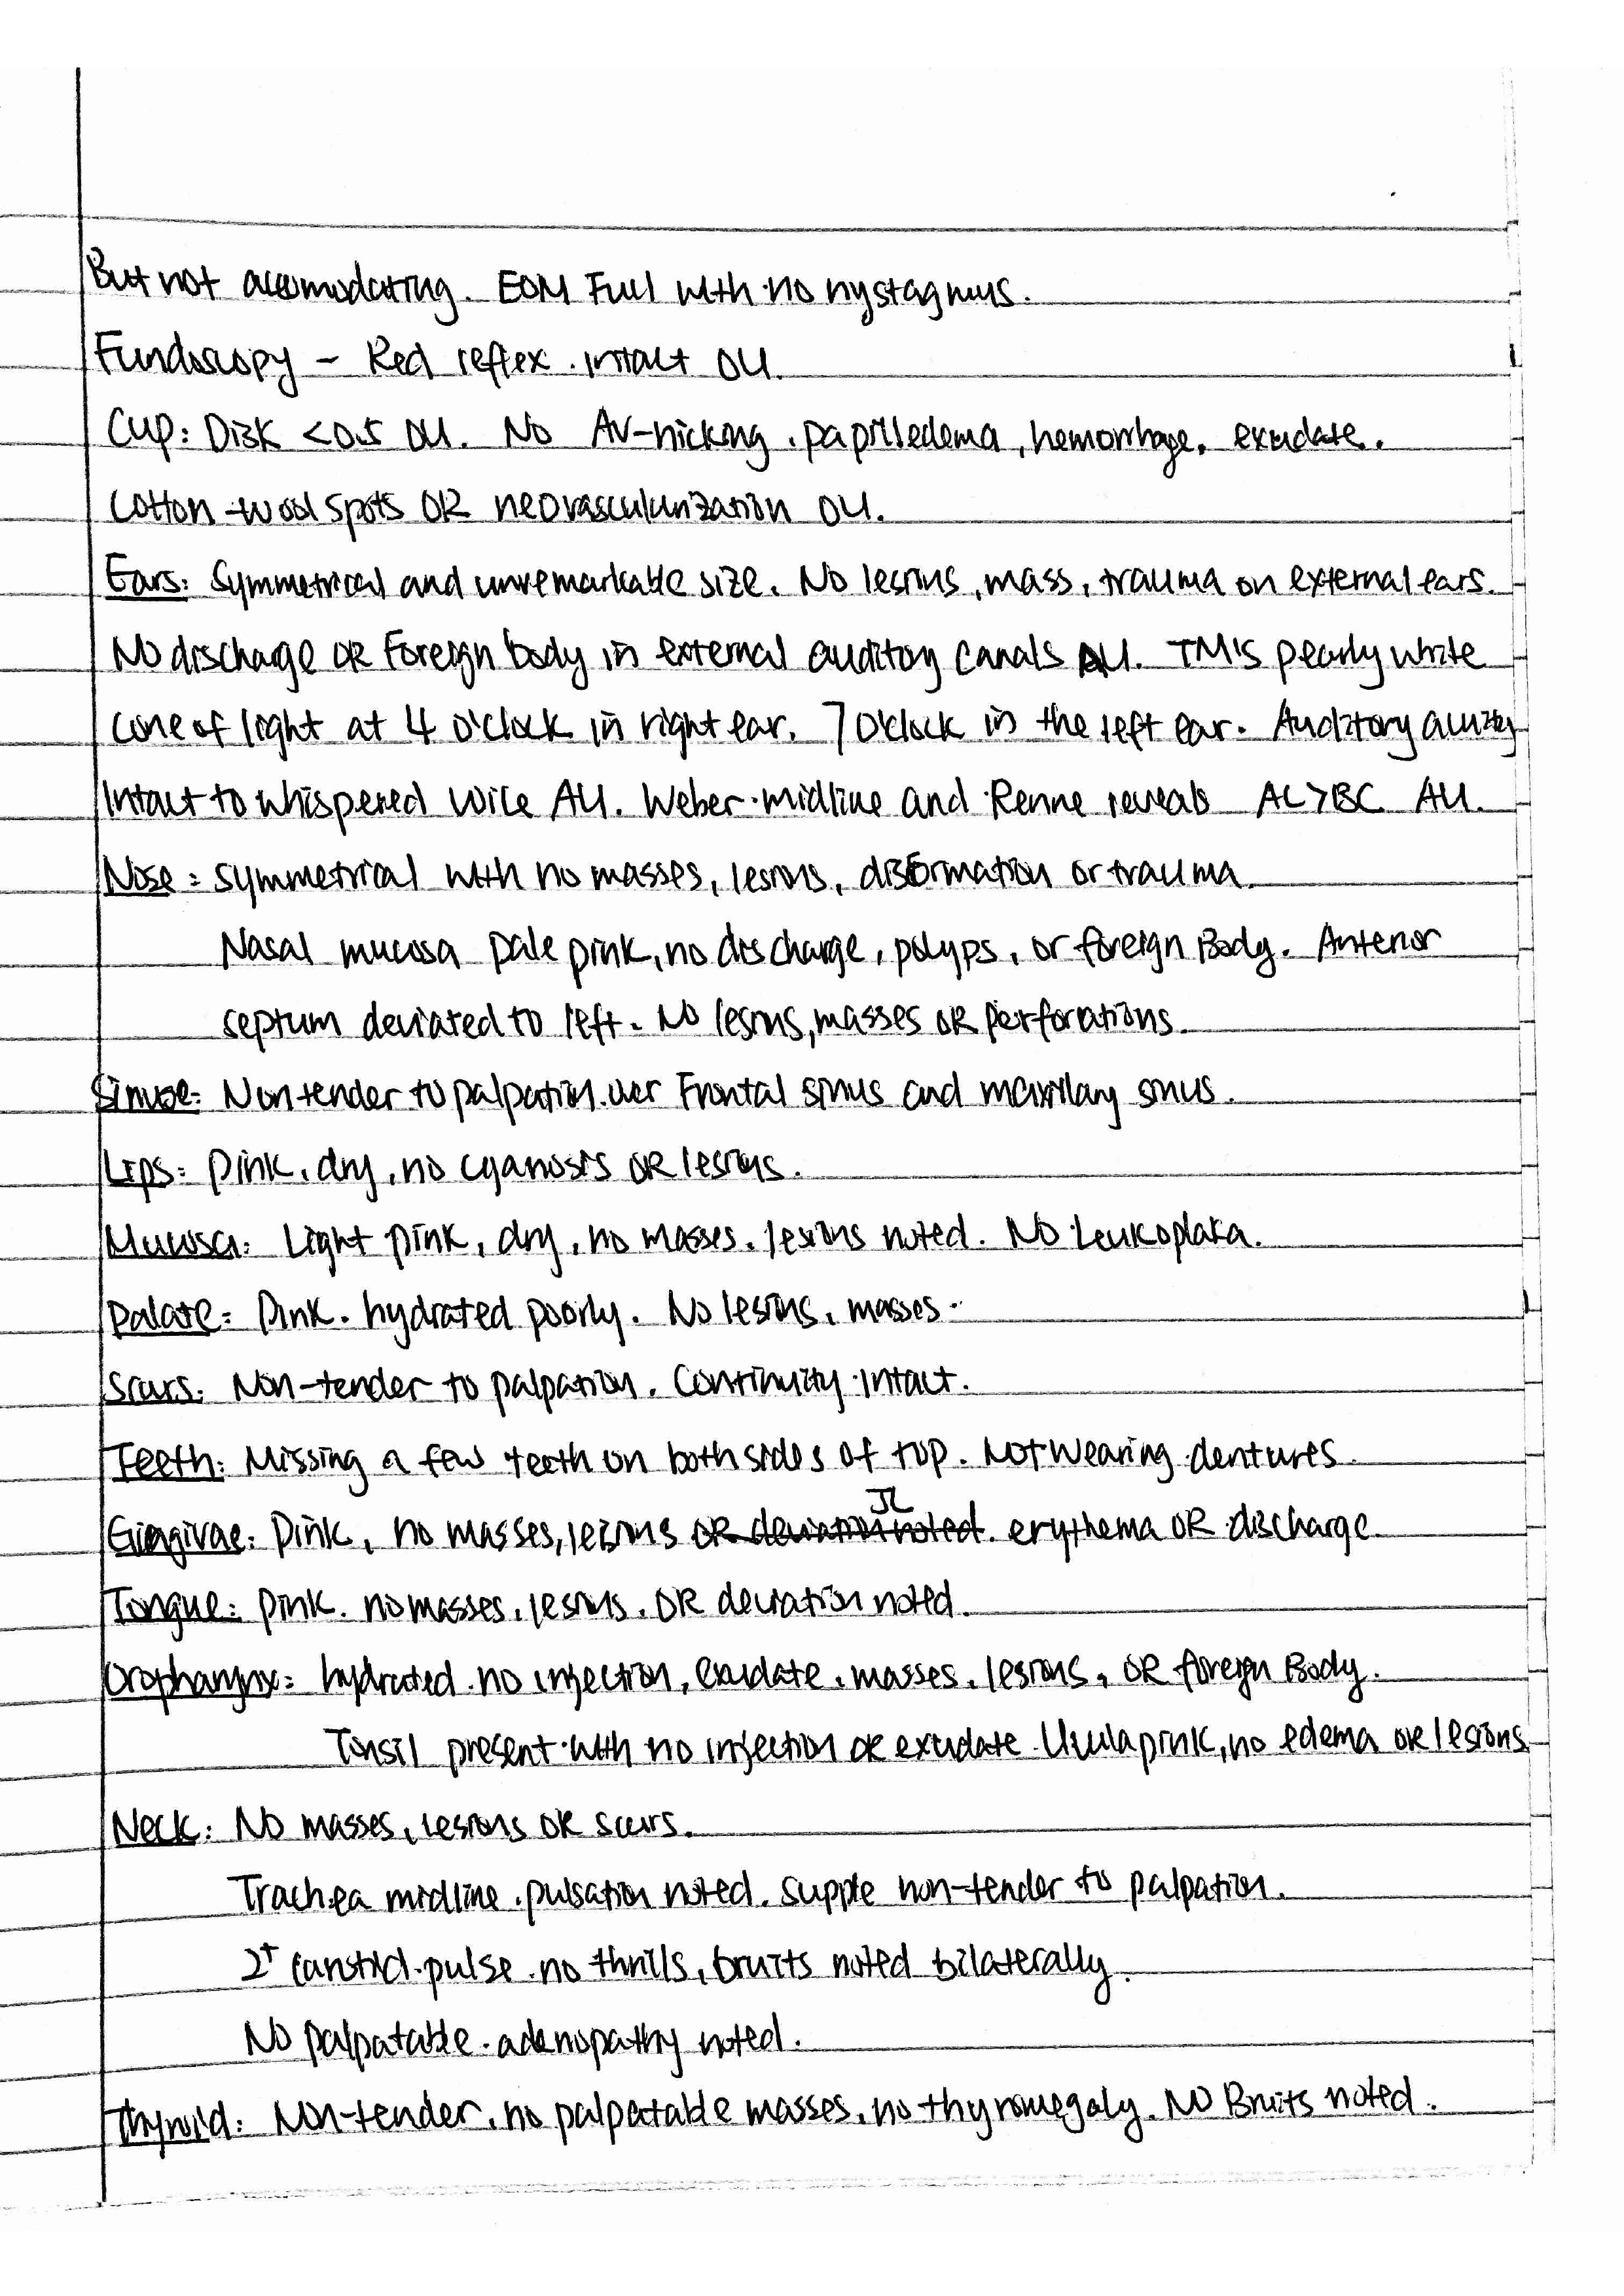 But not accomodating. EOM Full with no nystagmus.
Fundoscopy – Red reflex intact OU.
Cup: Disk <0.5 OU. No AV-nicking, papilledema, hemorrhage, exudate,
Cotton-wool spots OR neovascularization OU.
Ears: Symmetrical and unremarkable size. No lesions, mass, trauma on external ears.
No discharge OR Foreign body in external auditory canals AU. TM's pearly white
cone of light at 4 o'clock in right ear, 7 o'clock in the left ear. Auditory acuity
Intact to whispered voice AU. Weber midline and Renne reveals AC>BC AU.
Nose: symmetrical with no masses, lesions, disformation or trauma.
Nasal mucosa pale pink, no discharge, polyps, or foreign Body. Anterior
septum deviated to left. No lesions, masses OR perforations.
Sinuse: Non tender to palpation over Frontal sinus and maxillary sinus.
Lips: pink, dry, no cyanosis OR lesions.
Mucosa: Light pink, dry, no masses, lesions noted. No Leukoplaka.
Palate: Pink. hydrated poorly. No lesions, masses.
Scars: Non-tender to palpation. Continuity intact.
Teeth: Missing a few teeth on both sides of top. Not wearing dentures.
JL
Gingivae: Pink, no masses, lesions OR deviation noted. erythema OR discharge.
Tongue: pink. no masses, lesions, OR deviation noted.
Oropharynx: hydrated. no injection, exudate, masses, lesions, OR foreign Body.
Tonsil present with no injection OR exudate. Uvula pink, no edema OR lesions.
Neck: No masses, lesions OR scars.
Trachea midline. pulsation noted. supple non-tender to palpation.
2+ carotid pulse. no thrills, bruits noted bilaterally.
No palpatable adenopathy noted.
Thyroid: Non-tender, no palpatable masses, no thyromegaly. NO Bruits noted.